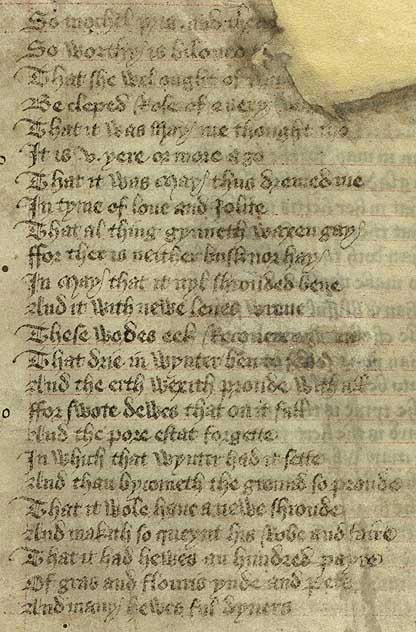 So mochel pris and ther
So worthy is biloued
That she wel ought of
Be cleped Rose of euery
That it was May me thought tho
It is .v. yere or more ago
That it was May thus dremed me
In tyme of loue and Jolite
That al thing gynneth waxen gay
ffor ther is neither busk nor hay
In May that it nyl shrouded bene
And it with newe leues wrene
These wodes eek recoueren
That drie in wynter ben to sene
And the erth wexith proude withall
ffor swote dewes that on it fall
And the pore estat forgette
In which that wynter had it sette
And than bycometh the ground so proude
That it wole haue a newe shroude
And makith so queynt his robe and faire
That it had hewes an hundred payre
Of gras and flouris ynde and Pers
And many hewes ful dyuers